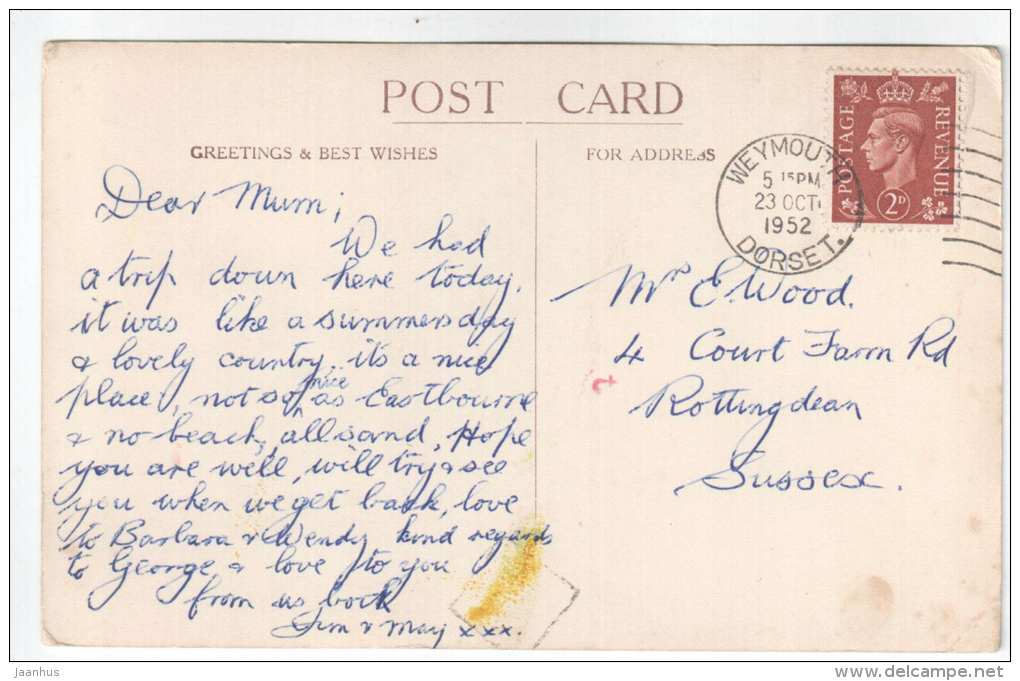 POST CARD
GREETINGS & BEST WISHES
FOR ADDRESS
POSTAGE
REVENUE
2D
WEYMOUTH
5 15PM
23 OCT
1952
DORSET.
Dear Mum;
We had
a trip down here today,
it was like a summers day
& lovely country, its a nice
place, not so nice as Eastbourne
& no beach, all sand, Hope
you are well, will try & see
you when we get back, love
to Barbara & Wendy kind regards
to George & love to you
from us both
Jim & May xxx.
Mrs E. Wood.
4 Court Farm Rd
Rottingdean
Sussex.
Jaanhus
www.delcampe.net